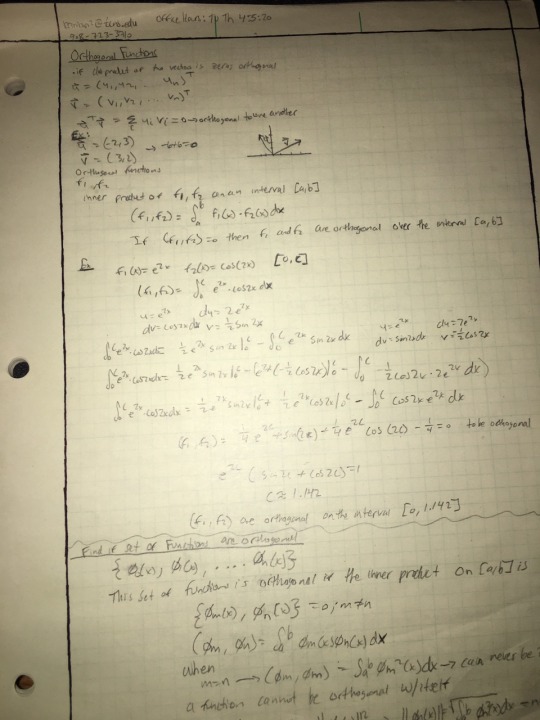 Office Hours: Tu Th 4:35:20
Orthogonal Functions
• if dot product of the vectors is zero, orthogonal
u⃗ = (u₁, u₂, ... uₙ)ᵀ
v⃗ = (v₁, v₂, ... vₙ)ᵀ
u⃗ᵀ v⃗ = Σ uᵢ vᵢ = 0 → orthogonal to one another
Ex:
u⃗ = (-2, 3) → -6+6=0
v⃗ = (3, 2)
u⃗ v⃗
Orthogonal functions
f₁, f₂
inner product of f₁, f₂ on an interval [a,b]
(f₁, f₂) = ∫ₐᵇ f₁(x)·f₂(x) dx
If (f₁, f₂) = 0 then f₁ and f₂ are orthogonal over the interval [a,b]
Ex f₁(x) = e²ˣ f₂(x) = cos(2x) [0, c]
(f₁, f₂) = ∫₀ᶜ e²ˣ·cos2x dx
u = e²ˣ du = 2e²ˣ
dv = cos2x dx v = ½ sin2x
u = e²ˣ du = 2e²ˣ
dv = sin2x dx v = ½ cos2x
∫₀ᶜ e²ˣ·cos2x dx = ½ e²ˣ sin2x|₀ᶜ − ∫₀ᶜ e²ˣ sin2x dx
∫₀ᶜ e²ˣ·cos2x dx = ½ e²ˣ sin2x|₀ᶜ − [e²ˣ(−½ cos2x)|₀ᶜ − ∫₀ᶜ −½ cos2x·2e²ˣ dx)
∫₀ᶜ e²ˣ·cos2x dx = ½ e²ˣ sin2x|₀ᶜ + ½ e²ˣ cos2x|₀ᶜ − ∫₀ᶜ cos2x e²ˣ dx
(f₁, f₂) = ¼ e²ᶜ sin(2c) + ¼ e²ᶜ cos(2c) − ¼ = 0 to be orthogonal
e²ᶜ (sin2c + cos2c) = 1
c ≈ 1.142
(f₁, f₂) are orthogonal on the interval [0, 1.142]
Find if set of Functions are orthogonal
{ Ø₁(x), Ø(x), .... Øₙ(x)}
This set of functions is orthogonal if the inner product on [a,b] is
{Øₘ(x), Øₙ(x)} = 0; m≠n
(Øₘ, Øₙ) = ∫ₐᵇ Øₘ(x)Øₙ(x) dx
when
m=n → (Øₘ, Øₘ) = ∫ₐᵇ Øₘ²(x) dx → can never be
a function cannot be orthogonal w/ itself